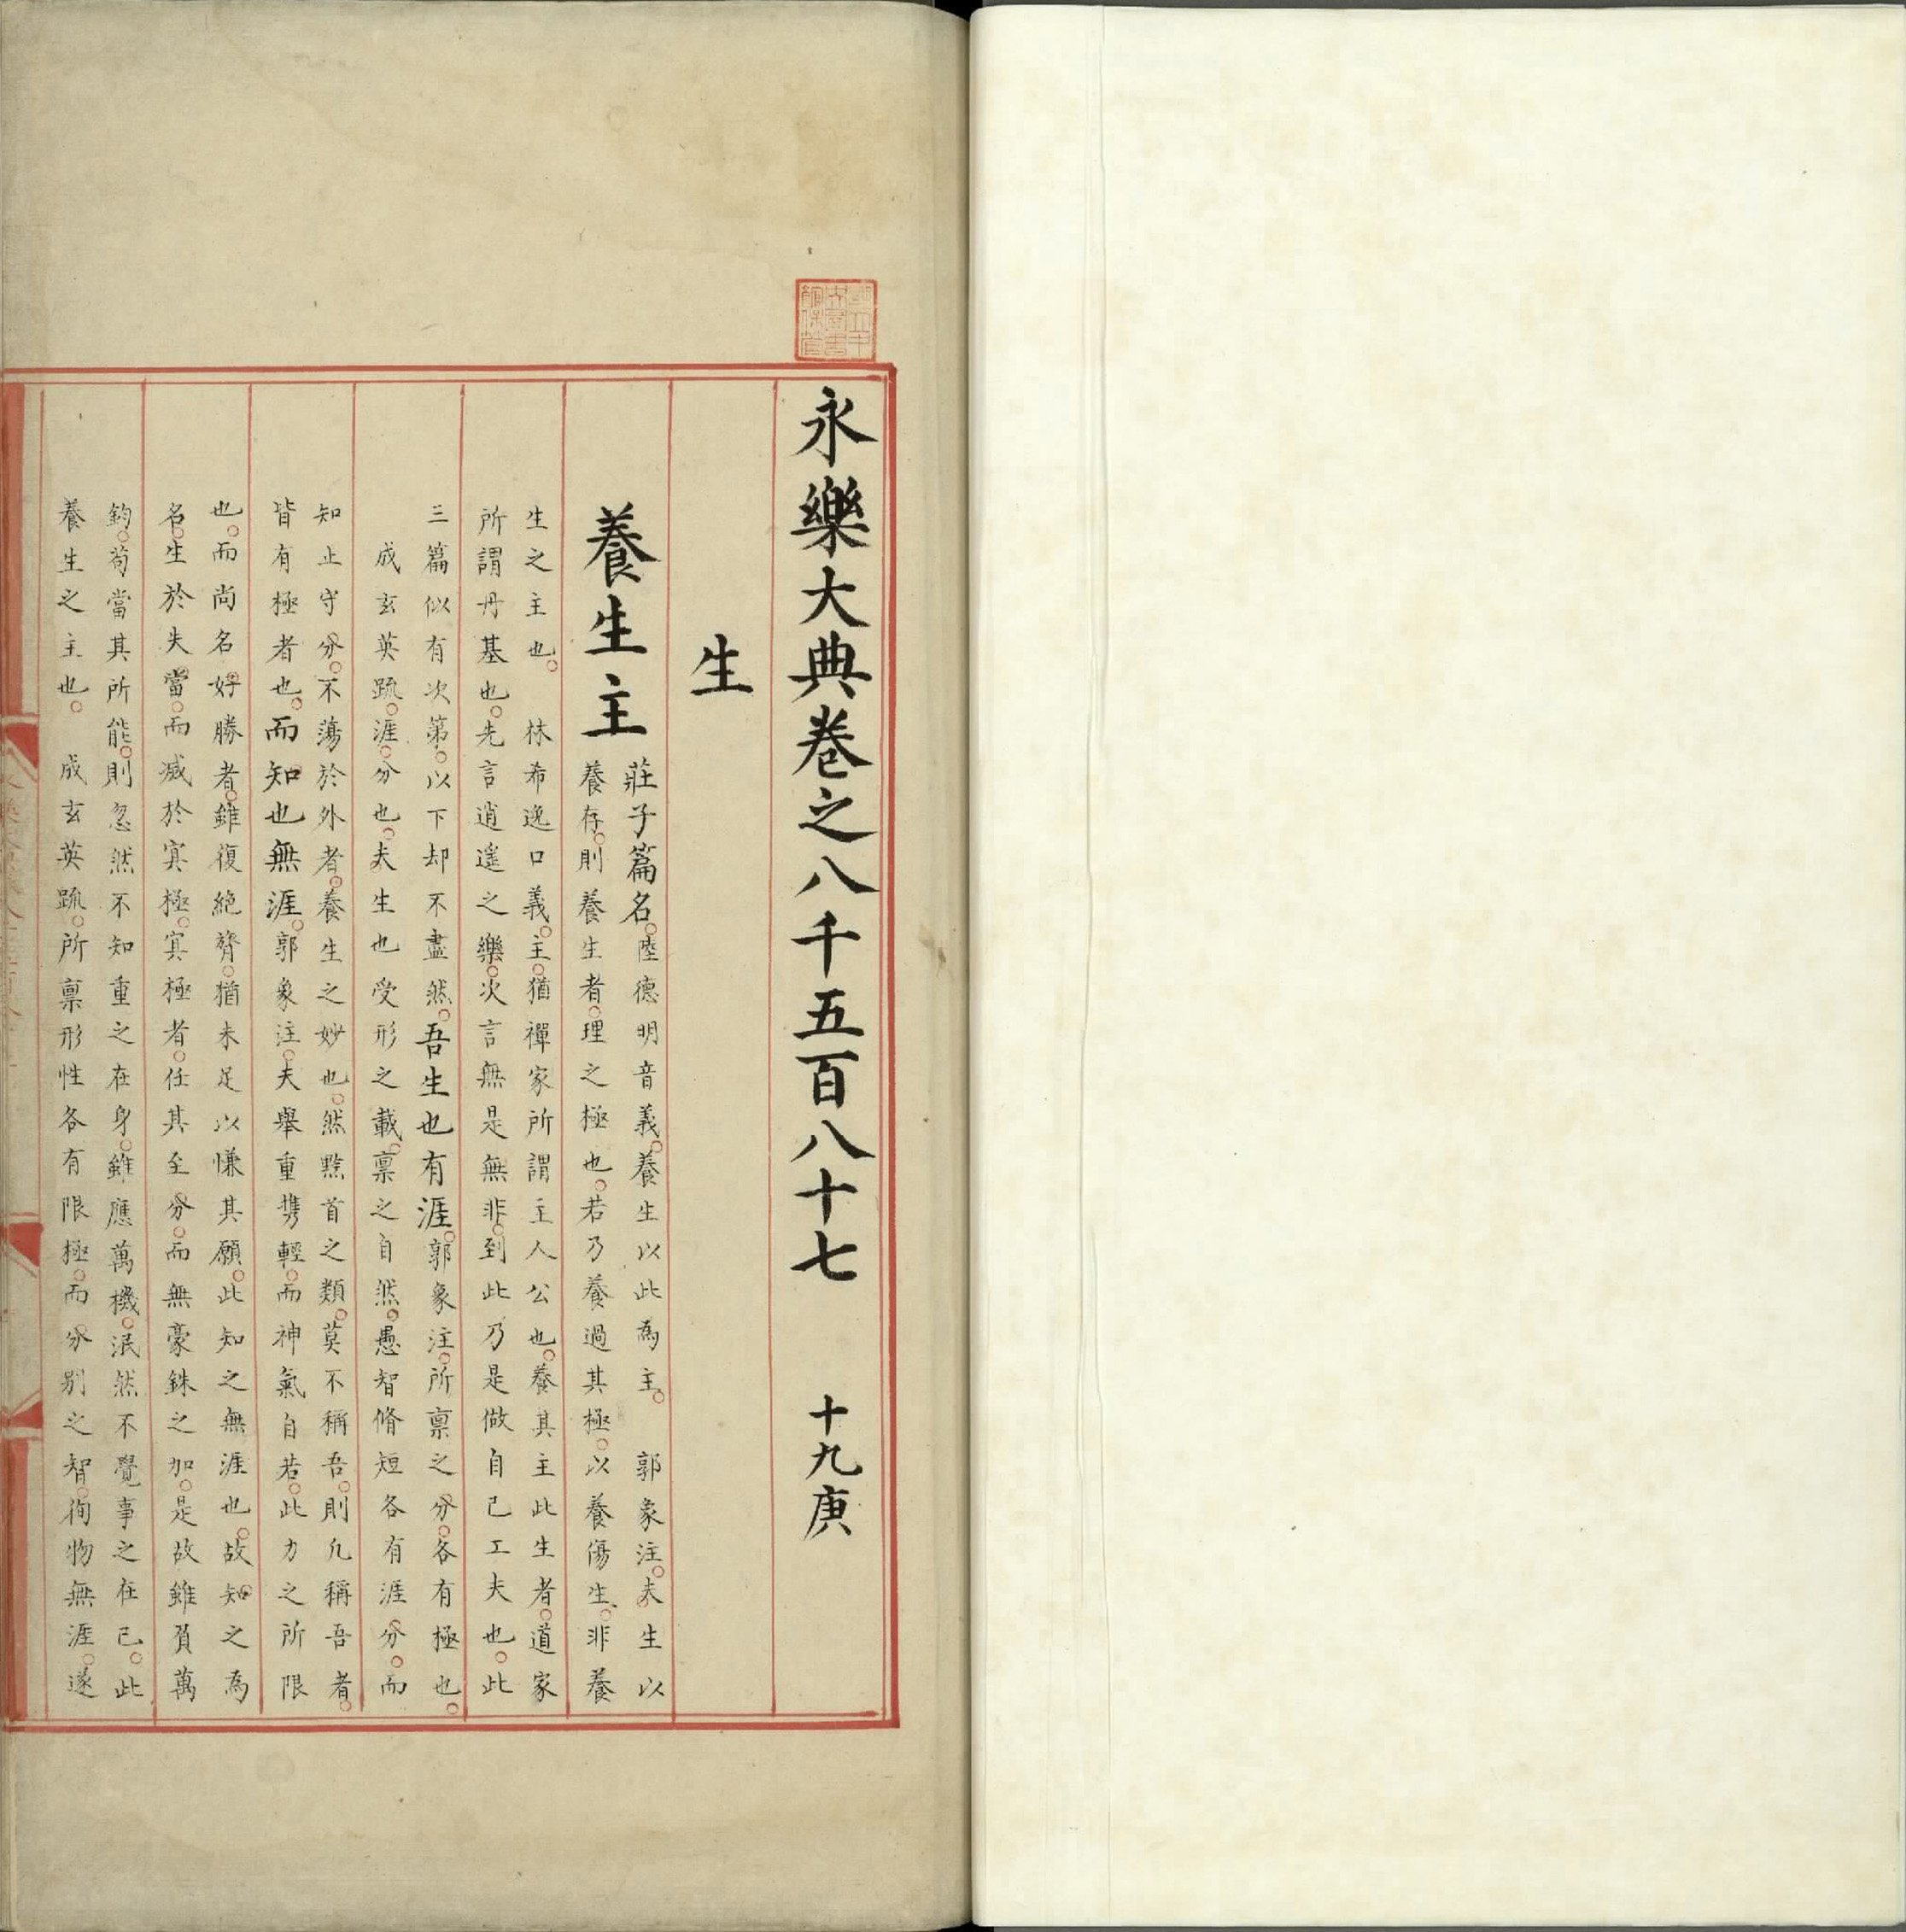 永樂大典卷之八千五百八十七　十九庚
生
養生主
莊子篇名。陸德明音義。養生以此為主。　郭象注。夫生以
養存。則養生者。理之極也。若乃養過其極。以養傷生。非養
生之主也。　林希逸口義。主。猶禪家所謂主人公也。養其主此生者。道家
所謂丹基也。先言逍遥之樂。次言無是無非。到此乃是做自己工夫也。此
三篇似有次第。以下却不盡然。吾生也有涯。郭象注。所禀之分。各有極也。
成玄英疏。涯。分也。夫生也受形之載。禀之自然。愚智脩短各有涯分。而
知止守分。不蕩於外者。養生之妙也。然黔首之類。莫不稱吾。則凡稱吾者。
皆有極者也。而知也無涯。郭象注。夫舉重擕輕。而神氣自若。此力之所限
也。而尚名好勝者。雖復絶膂。猶未足以慊其願。此知之無涯也。故知之為
名。生於失當。而滅於冥極。冥極者。任其至分。而無豪銖之加。是故雖負萬
鈞。苟當其所能。則忽然不知重之在身。雖應萬機。泯然不覺事之在己。此
養生之主也。　成玄英疏。所禀形性各有限極。而分別之智。徇物無涯。遂